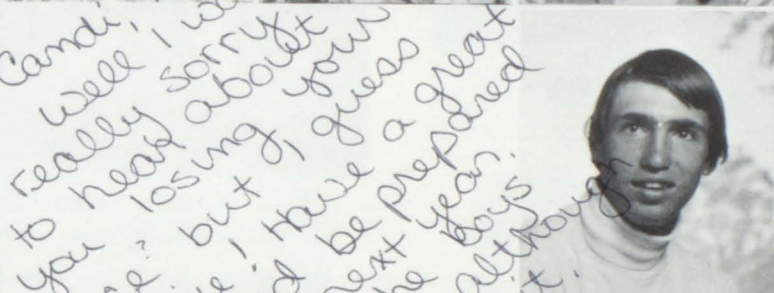 Candi,
well, I
really sorry
to hear about
you losing your
but, guess
! Have a great
be prepared
next year.
boys
although